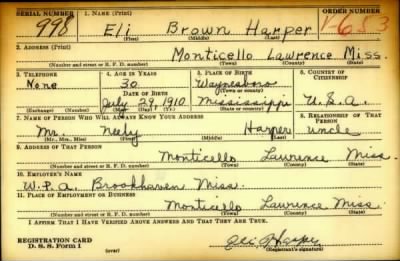 SERIAL NUMBER 1. NAME (Print) ORDER NUMBER
998 Eli Brown Harper V-683
(First) (Middle) (Last)
2. ADDRESS (Print)
Monticello Lawrence Miss.
(Number and street or R. F. D. number) (Town) (County) (State)
3. TELEPHONE 4. AGE IN YEARS 5. PLACE OF BIRTH 6. COUNTRY OF CITIZENSHIP
None 30 Waynesboro
DATE OF BIRTH (Town or county)
July 29, 1910 Mississippi U.S.A.
(Exchange) (Number) (Mo.) (Day) (Yr.) (State or country)
7. NAME OF PERSON WHO WILL ALWAYS KNOW YOUR ADDRESS 8. RELATIONSHIP OF THAT PERSON
Mr. Neely Harper Uncle
(Mr., Mrs., Miss) (First) (Middle) (Last)
9. ADDRESS OF THAT PERSON
Monticello Lawrence Miss.
(Number and street or R. F. D. number) (Town) (County) (State)
10. EMPLOYER'S NAME
W.P.A. Brookhaven Miss.
11. PLACE OF EMPLOYMENT OR BUSINESS
Monticello Lawrence Miss.
(Number and street or R. F. D. number) (Town) (County) (State)
I AFFIRM THAT I HAVE VERIFIED ABOVE ANSWERS AND THAT THEY ARE TRUE.
REGISTRATION CARD
D. S. S. FORM 1 (over) Eli B Harper
(Registrant's signature)